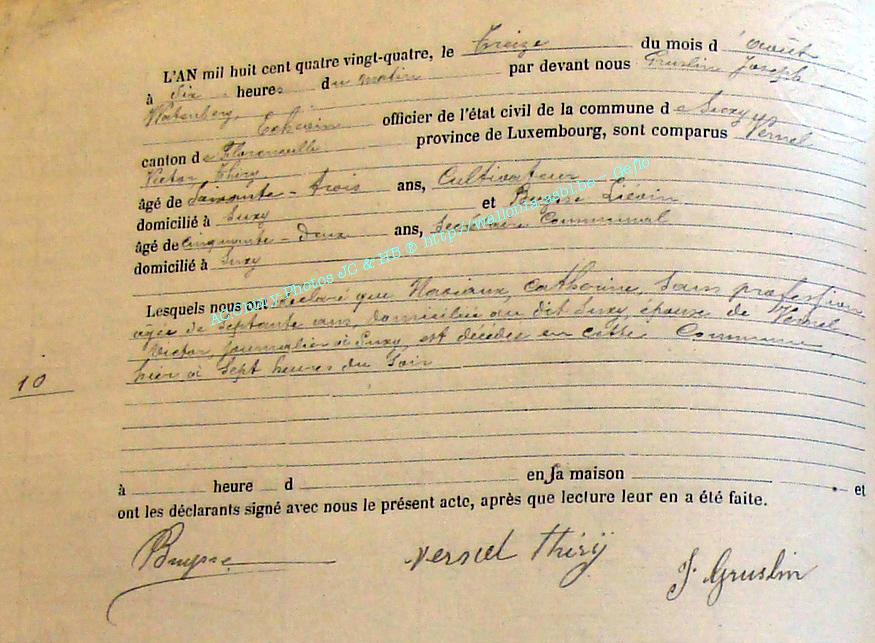 L'AN mil huit cent quatre vingt-quatre, le Treize du mois d'août
à Six heures du matin par devant nous Gruslin Joseph
Echevin officier de l'état civil de la commune de Suxy
canton de Florenville province de Luxembourg, sont comparus Versel
Victor, Thiry
âgé de Soixante-trois ans, Cultivateur
domicilié à Suxy et Buysse Liévin
âgé de cinquante-deux ans, Secrétaire Communal
domicilié à Suxy
Lesquels nous ont déclaré que Mariaux, Catherine, Sans profession
âgée de Septante ans, domiciliée au dit Suxy, épouse de Versel
Victor journalier à Suxy, est décédée en cette Commune,
hier à Sept heures du Soir
10
à heure d en sa maison et
ont les déclarants signé avec nous le présent acte, après que lecture leur en a été faite.
Buysse Versel Thiry J. Gruslin
Photos JC & HB ® http://wallonia-asbl.be - Geflo